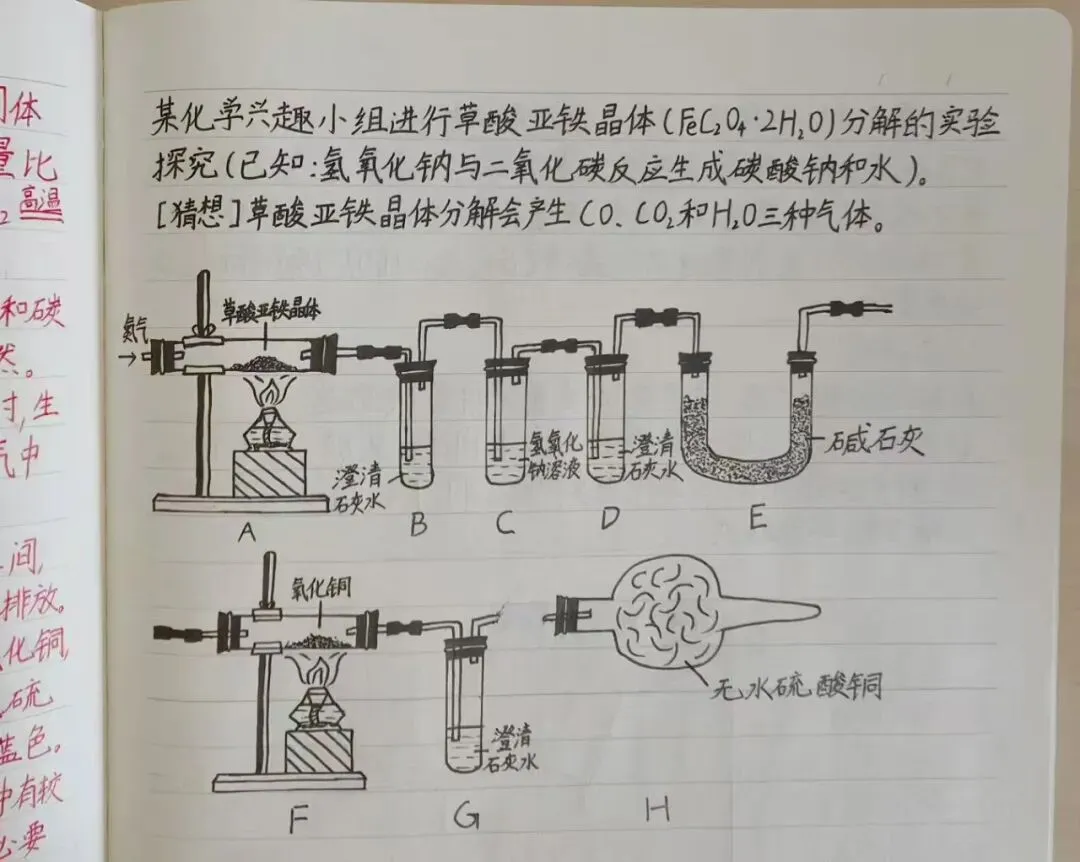 某化学兴趣小组进行草酸亚铁晶体(FeC₂O₄·2H₂O)分解的实验
探究(已知:氢氧化钠与二氧化碳反应生成碳酸钠和水)。
[猜想]草酸亚铁晶体分解会产生CO、CO₂和H₂O三种气体。
氮气
草酸亚铁晶体
澄清
石灰水
氢氧化
钠溶液
澄清
石灰水
碱石灰
A
B
C
D
E
氧化铜
澄清
石灰水
无水硫酸铜
F
G
H
体
量比
高温
2
和碳
然。
时,生
气中
间,
排放。
化铜,
硫
蓝色。
中有较
必要